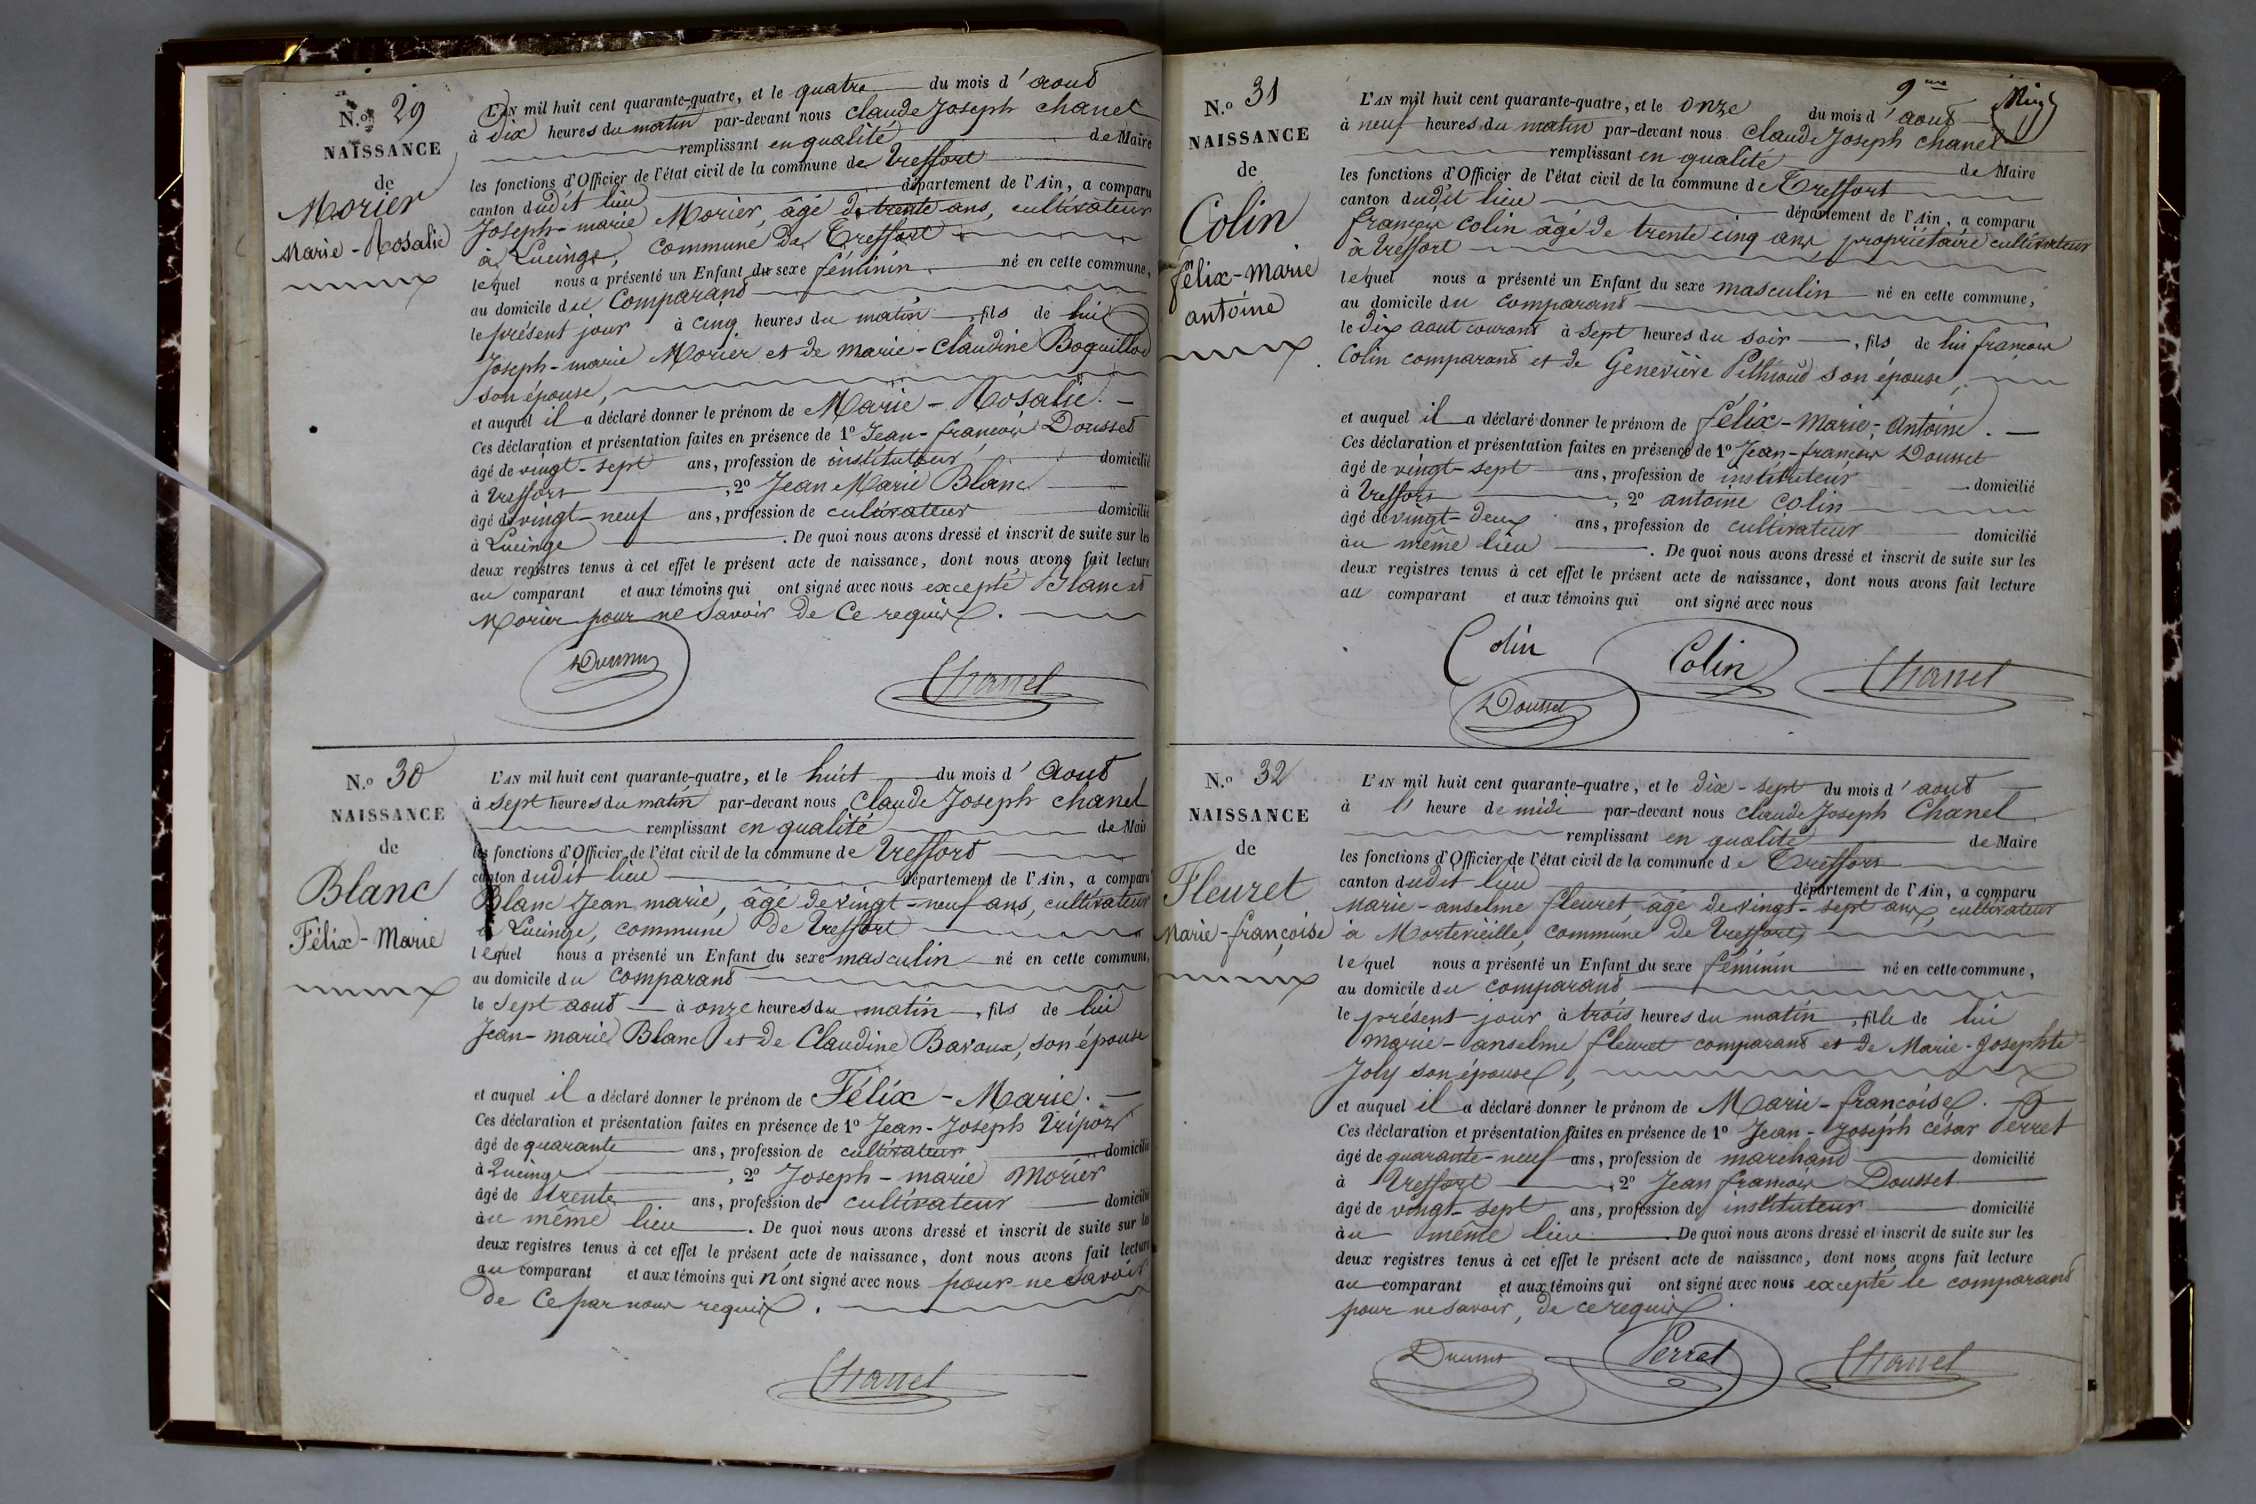 N.o 29
NAISSANCE
de
Morier
Marie-Rosalie
L'AN mil huit cent quarante-quatre, et le quatre du mois d'aout
à dix heures du matin par-devant nous Claude Joseph Chanel
remplissant en qualité de Maire
les fonctions d'Officier de l'état civil de la commune de Treffort
canton dudit lieu département de l'Ain, a comparu
Joseph-marie Morier, âgé de trente ans, cultivateur
à Lucinge, commune de Treffort
lequel nous a présenté un Enfant du sexe féminin né en cette commune,
au domicile du Comparant
le présent jour à cinq heures du matin, fils de lui
Joseph-marie Morier et de Marie-Claudine Boquillod
son épouse,
et auquel il a déclaré donner le prénom de Marie-Rosalie.
Ces déclaration et présentation faites en présence de 1o Jean-françois Dousset
âgé de vingt-sept ans, profession de instituteur domicilié
à Treffort, 2o Jean Marie Blanc
âgé de vingt-neuf ans, profession de cultivateur domicilié
à Lucinge. De quoi nous avons dressé et inscrit de suite sur les
deux registres tenus à cet effet le présent acte de naissance, dont nous avons fait lecture
au comparant et aux témoins qui ont signé avec nous excepté Blanc et
Morier pour ne savoir de ce requis.
Dousset Chanel
N.o 30
NAISSANCE
de
Blanc
Félix-Marie
L'AN mil huit cent quarante-quatre, et le huit du mois d'aout
à sept heures du matin par-devant nous Claude Joseph chanel
remplissant en qualité de Mai
les fonctions d'Officier de l'état civil de la commune de Treffort
canton dudit lieu département de l'Ain, a comparu
Blanc Jean marie, âgé de vingt-neuf ans, cultivateur
à Lucinge, commune de Treffort
lequel nous a présenté un Enfant du sexe masculin né en cette commune,
au domicile du comparant
le sept aout à onze heures du matin, fils de lui
Jean-marie Blanc et de Claudine Bavoux, son épouse
et auquel il a déclaré donner le prénom de Félix-Marie.
Ces déclaration et présentation faites en présence de 1o Jean-Joseph Tripoz
âgé de quarante ans, profession de cultivateur domicilié
à Lucinge, 2o Joseph-marie Morier
âgé de trente ans, profession de cultivateur domicilié
au même lieu. De quoi nous avons dressé et inscrit de suite sur les
deux registres tenus à cet effet le présent acte de naissance, dont nous avons fait lecture
au comparant et aux témoins qui n'ont signé avec nous pour ne savoir
de ce par nous requis.
Chanel
9me
N.o 31
NAISSANCE
de
Colin
félix-Marie
antoine
L'AN mil huit cent quarante-quatre, et le onze du mois d'aout
à neuf heures du matin par-devant nous Claude Joseph Chanel
remplissant en qualité de Maire
les fonctions d'Officier de l'état civil de la commune de Treffort
canton dudit lieu département de l'Ain, a comparu
françois Colin âgé de trente cinq ans, propriétaire cultivateur
à Treffort
lequel nous a présenté un Enfant du sexe masculin né en cette commune,
au domicile du comparant
le dix aout courant à sept heures du soir, fils de lui françois
Colin comparant et de Geneviève Pethioud son épouse,
et auquel il a déclaré donner le prénom de félix-Marie-Antoine.
Ces déclaration et présentation faites en présence de 1o Jean-françois Dousset
âgé de vingt-sept ans, profession de instituteur domicilié
à Treffort, 2o antoine Colin
âgé de vingt-deux ans, profession de cultivateur domicilié
au même lieu. De quoi nous avons dressé et inscrit de suite sur les
deux registres tenus à cet effet le présent acte de naissance, dont nous avons fait lecture
au comparant et aux témoins qui ont signé avec nous
Colin Colin Chanel
Dousset
N.o 32
NAISSANCE
de
Fleuret
Marie-françoise
L'AN mil huit cent quarante-quatre, et le dix-sept du mois d'aout
à l'heure de midi par-devant nous Claude Joseph Chanel
remplissant en qualité de Maire
les fonctions d'Officier de l'état civil de la commune de Treffort
canton dudit lieu département de l'Ain, a comparu
Marie-anselme fleuret, âgé de vingt-sept ans, cultivateur
à Mortevieille, commune de Treffort,
lequel nous a présenté un Enfant du sexe féminin né en cette commune,
au domicile du comparant
le présent jour à trois heures du matin, fille de lui
marie-anselme fleuret comparant et de Marie-Josephte
Joly son épouse,
et auquel il a déclaré donner le prénom de Marie-françoise.
Ces déclaration et présentation faites en présence de 1o Jean-Joseph césar Perret
âgé de quarante-neuf ans, profession de marchand domicilié
à Treffort, 2o Jean françois Dousset
âgé de vingt-sept ans, profession de instituteur domicilié
au même lieu. De quoi nous avons dressé et inscrit de suite sur les
deux registres tenus à cet effet le présent acte de naissance, dont nous avons fait lecture
au comparant et aux témoins qui ont signé avec nous excepté le comparant
pour ne savoir, de ce requis.
Dousset Perret Chanel